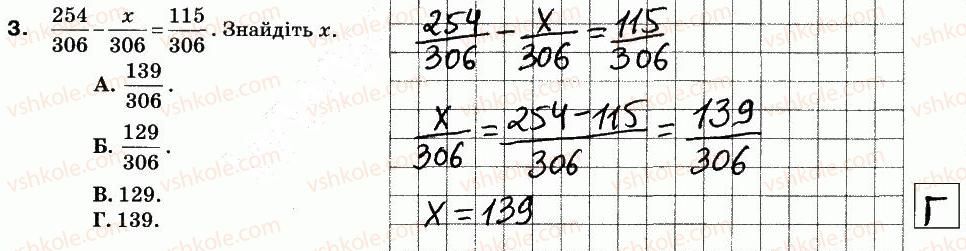 3. 254/306 − x/306 = 115/306 . Знайдіть x.
А. 139/306 .
Б. 129/306 .
В. 129.
Г. 139.
254/306 − x/306 = 115/306
x/306 = 254−115/306 = 139/306
x = 139
Г